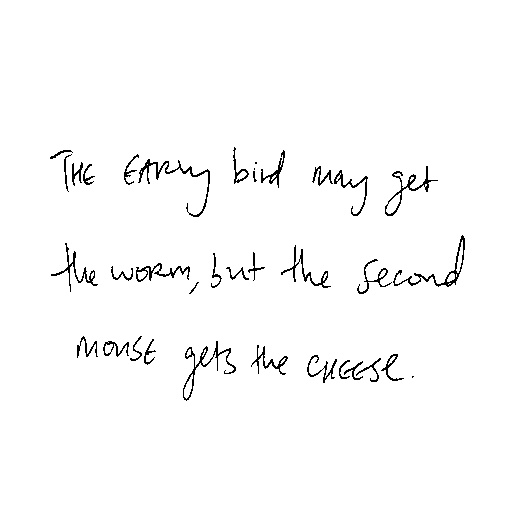 THE EARLY bird may get
the worm, but the second
mouse gets the CHEESE.